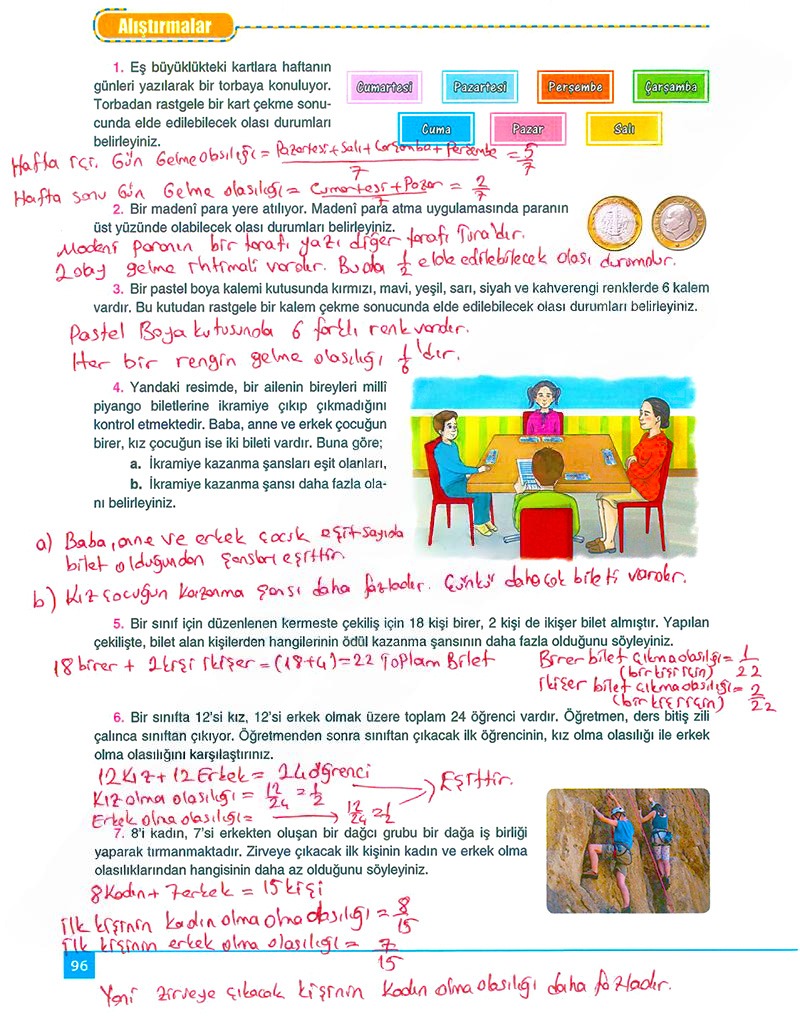 Alıştırmalar
1. Eş büyüklükteki kartlara haftanın
günleri yazılarak bir torbaya konuluyor.
Torbadan rastgele bir kart çekme sonu-
cunda elde edilebilecek olası durumları
belirleyiniz.
Cumartesi
Pazartesi
Perşembe
Çarşamba
Cuma
Pazar
Salı
Hafta içi Gün Gelme olasılığı = Pazartesi + Salı + Çarşamba + Perşembe / 7 = 5/7
Hafta sonu Gün Gelme olasılığı = Cumartesi + Pazar / 7 = 2/7
2. Bir madenî para yere atılıyor. Madenî para atma uygulamasında paranın
üst yüzünde olabilecek olası durumları belirleyiniz.
Madeni paranın bir tarafı yazı diğer tarafı Tura'dır.
2 olay gelme ihtimali vardır. Bu da 1/2 elde edilebilecek olası durumdur.
3. Bir pastel boya kalemi kutusunda kırmızı, mavi, yeşil, sarı, siyah ve kahverengi renklerde 6 kalem
vardır. Bu kutudan rastgele bir kalem çekme sonucunda elde edilebilecek olası durumları belirleyiniz.
Pastel Boya kutusunda 6 farklı renk vardır.
Her bir rengin gelme olasılığı 1/6'dır.
4. Yandaki resimde, bir ailenin bireyleri millî
piyango biletlerine ikramiye çıkıp çıkmadığını
kontrol etmektedir. Baba, anne ve erkek çocuğun
birer, kız çocuğun ise iki bileti vardır. Buna göre;
a. İkramiye kazanma şansları eşit olanları,
b. İkramiye kazanma şansı daha fazla ola-
nı belirleyiniz.
a) Baba, anne ve erkek çocuk eşit sayıda
bilet olduğundan şansları eşittir.
b) Kız çocuğun kazanma şansı daha fazladır. Çünkü daha çok bileti vardır.
5. Bir sınıf için düzenlenen kermeste çekiliş için 18 kişi birer, 2 kişi de ikişer bilet almıştır. Yapılan
çekilişte, bilet alan kişilerden hangilerinin ödül kazanma şansının daha fazla olduğunu söyleyiniz.
18 birer + 2 kişi ikişer = (18+4) = 22 Toplam Bilet
Birer bilet çıkma olasılığı = 1/22
(bir kişi için)
ikişer bilet çıkma olasılığı = 2/22
(bir kişi için)
6. Bir sınıfta 12'si kız, 12'si erkek olmak üzere toplam 24 öğrenci vardır. Öğretmen, ders bitiş zili
çalınca sınıftan çıkıyor. Öğretmenden sonra sınıftan çıkacak ilk öğrencinin, kız olma olasılığı ile erkek
olma olasılığını karşılaştırınız.
12 Kız + 12 Erkek = 24 öğrenci
Kız olma olasılığı = 12/24 = 1/2
Erkek olma olasılığı = 12/24 = 1/2
Eşittir.
7. 8'i kadın, 7'si erkekten oluşan bir dağcı grubu bir dağa iş birliği
yaparak tırmanmaktadır. Zirveye çıkacak ilk kişinin kadın ve erkek olma
olasılıklarından hangisinin daha az olduğunu söyleyiniz.
8 Kadın + 7 erkek = 15 kişi
ilk kişinin kadın olma olma olasılığı = 8/15
ilk kişinin erkek olma olasılığı = 7/15
96
Yani zirveye çıkacak kişinin kadın olma olasılığı daha fazladır.